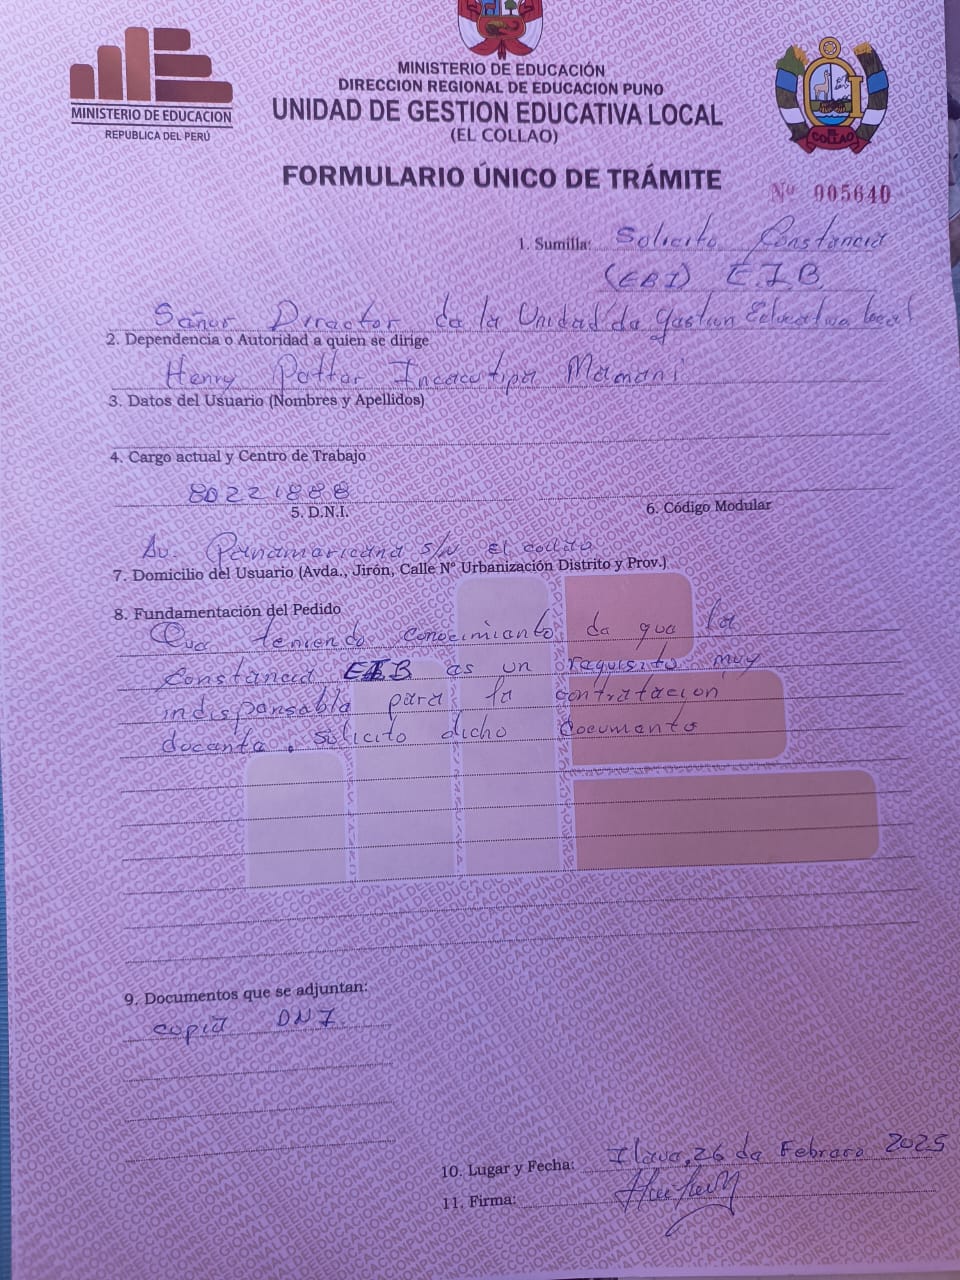 MINISTERIO DE EDUCACION
REPUBLICA DEL PERÚ
MINISTERIO DE EDUCACIÓN
DIRECCION REGIONAL DE EDUCACION PUNO
UNIDAD DE GESTION EDUCATIVA LOCAL
(EL COLLAO)
EL COLLAO
FORMULARIO ÚNICO DE TRÁMITE
Nº 005640
1. Sumilla: Solicito Constancia
(EBI) E.I.B
Señor Director de la Unidad de Gestion Educativa Local
2. Dependencia o Autoridad a quien se dirige
Henry Potter Incacutipa Mamani
3. Datos del Usuario (Nombres y Apellidos)
4. Cargo actual y Centro de Trabajo
80221888
5. D.N.I.
6. Código Modular
Av. Panamericana s/n El collao
7. Domicilio del Usuario (Avda., Jirón, Calle Nº Urbanización Distrito y Prov.)
8. Fundamentación del Pedido
Que teniendo conocimiento de que la
Constancia EIB es un requisito muy
indispensable para la contratacion
docente, solicito dicho documento
9. Documentos que se adjuntan:
copia DNI.
10. Lugar y Fecha: Ilave, 26 de Febrero 2025
11. Firma: